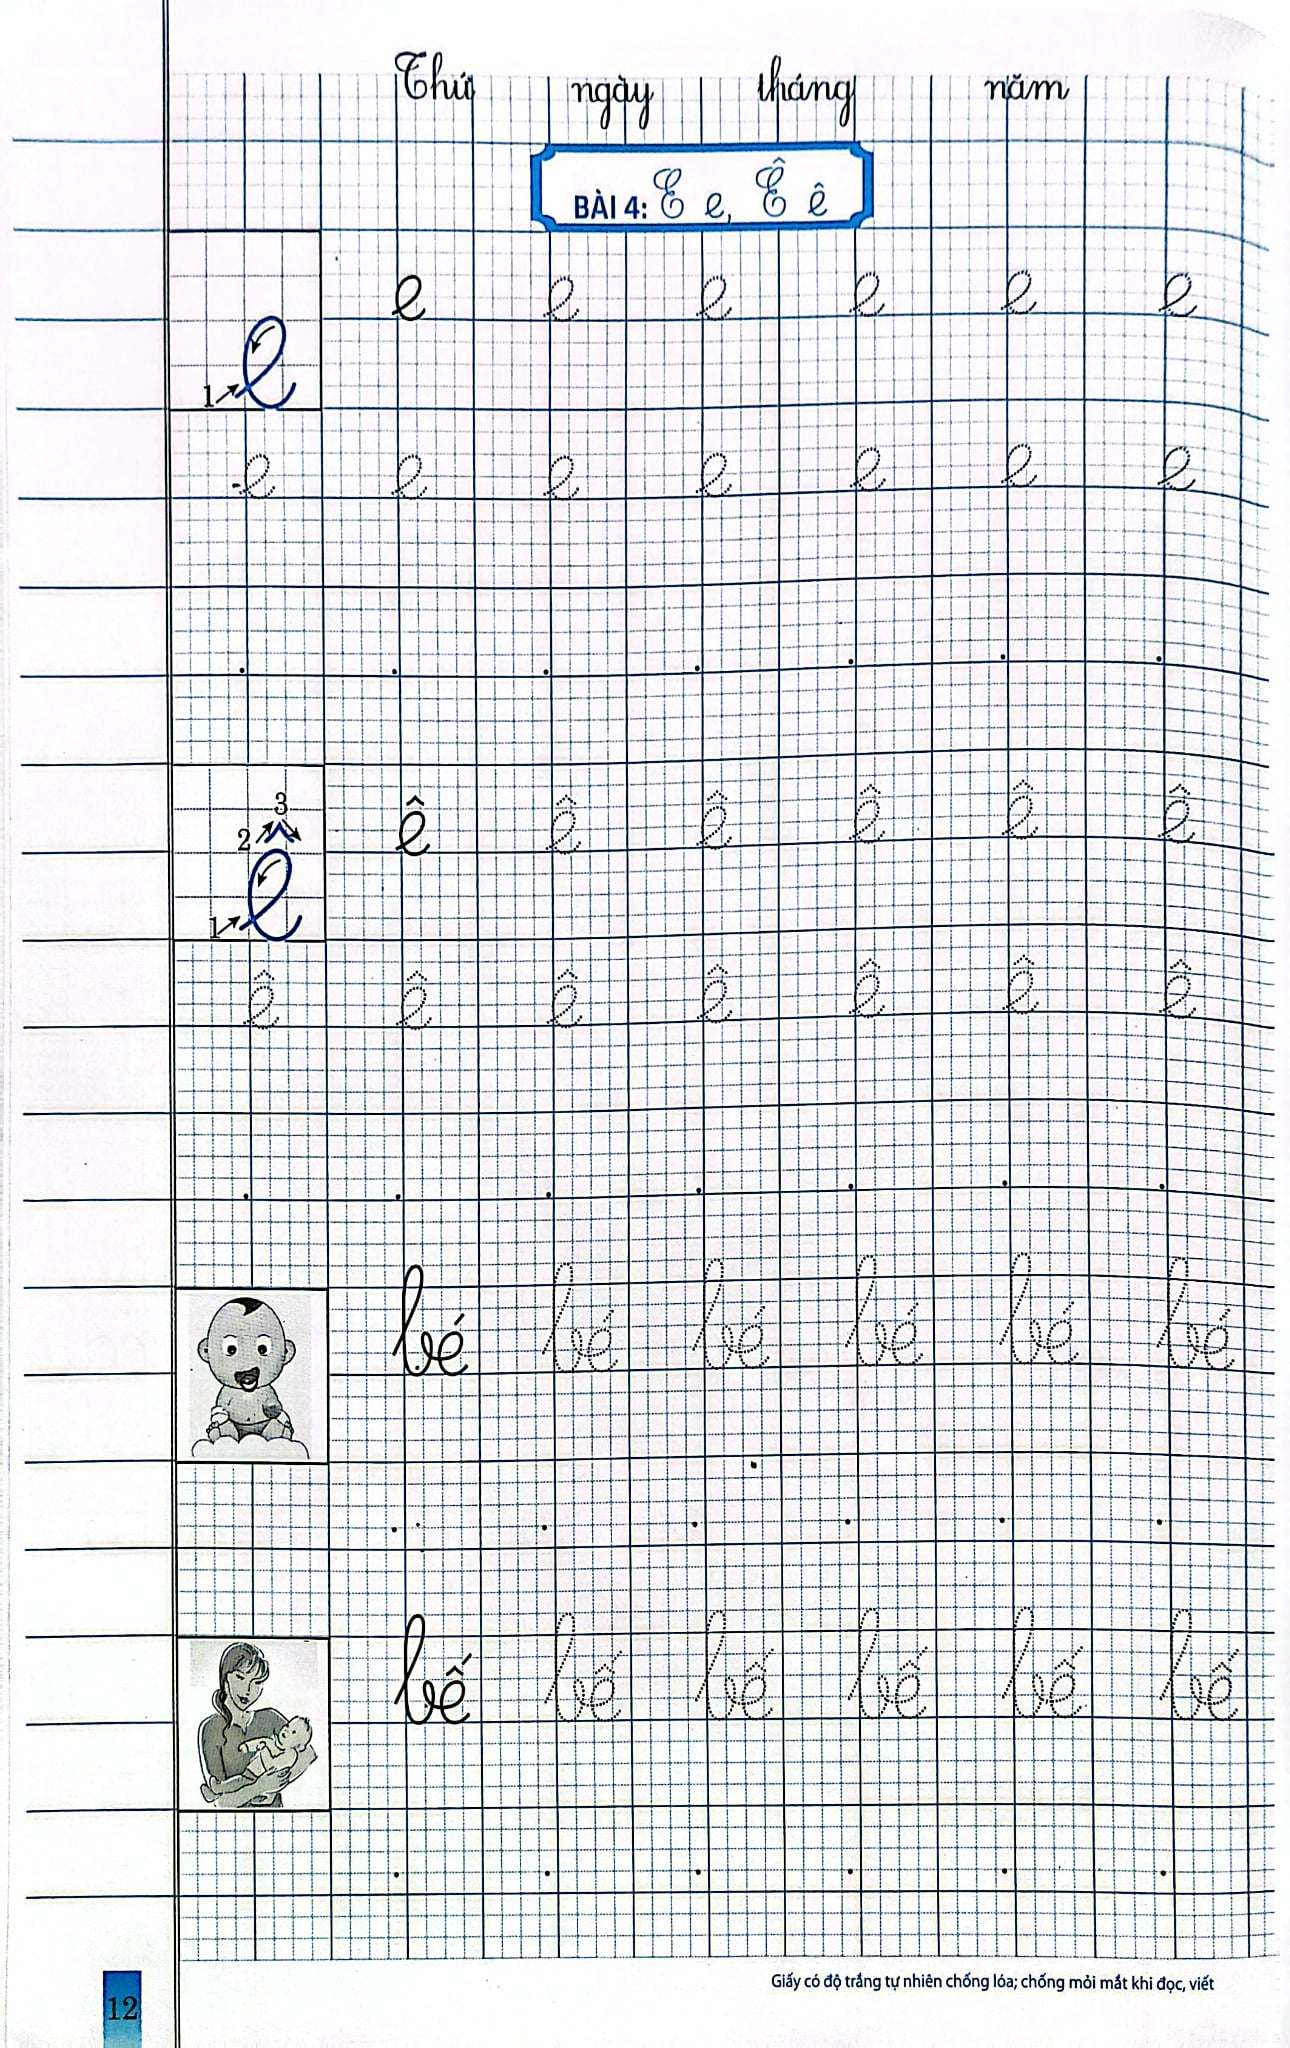 Thứ ngày tháng năm
BÀI 4: E e, Ê ê
e e e e e e
1 e
e e e e e e e
3
2
ê ê ê ê ê ê
1 ê
ê ê ê ê ê ê ê
bé bé bé bé bé bé
bế bế bế bế bế bế
Giấy có độ trắng tự nhiên chống lóa; chống mỏi mắt khi đọc, viết
12